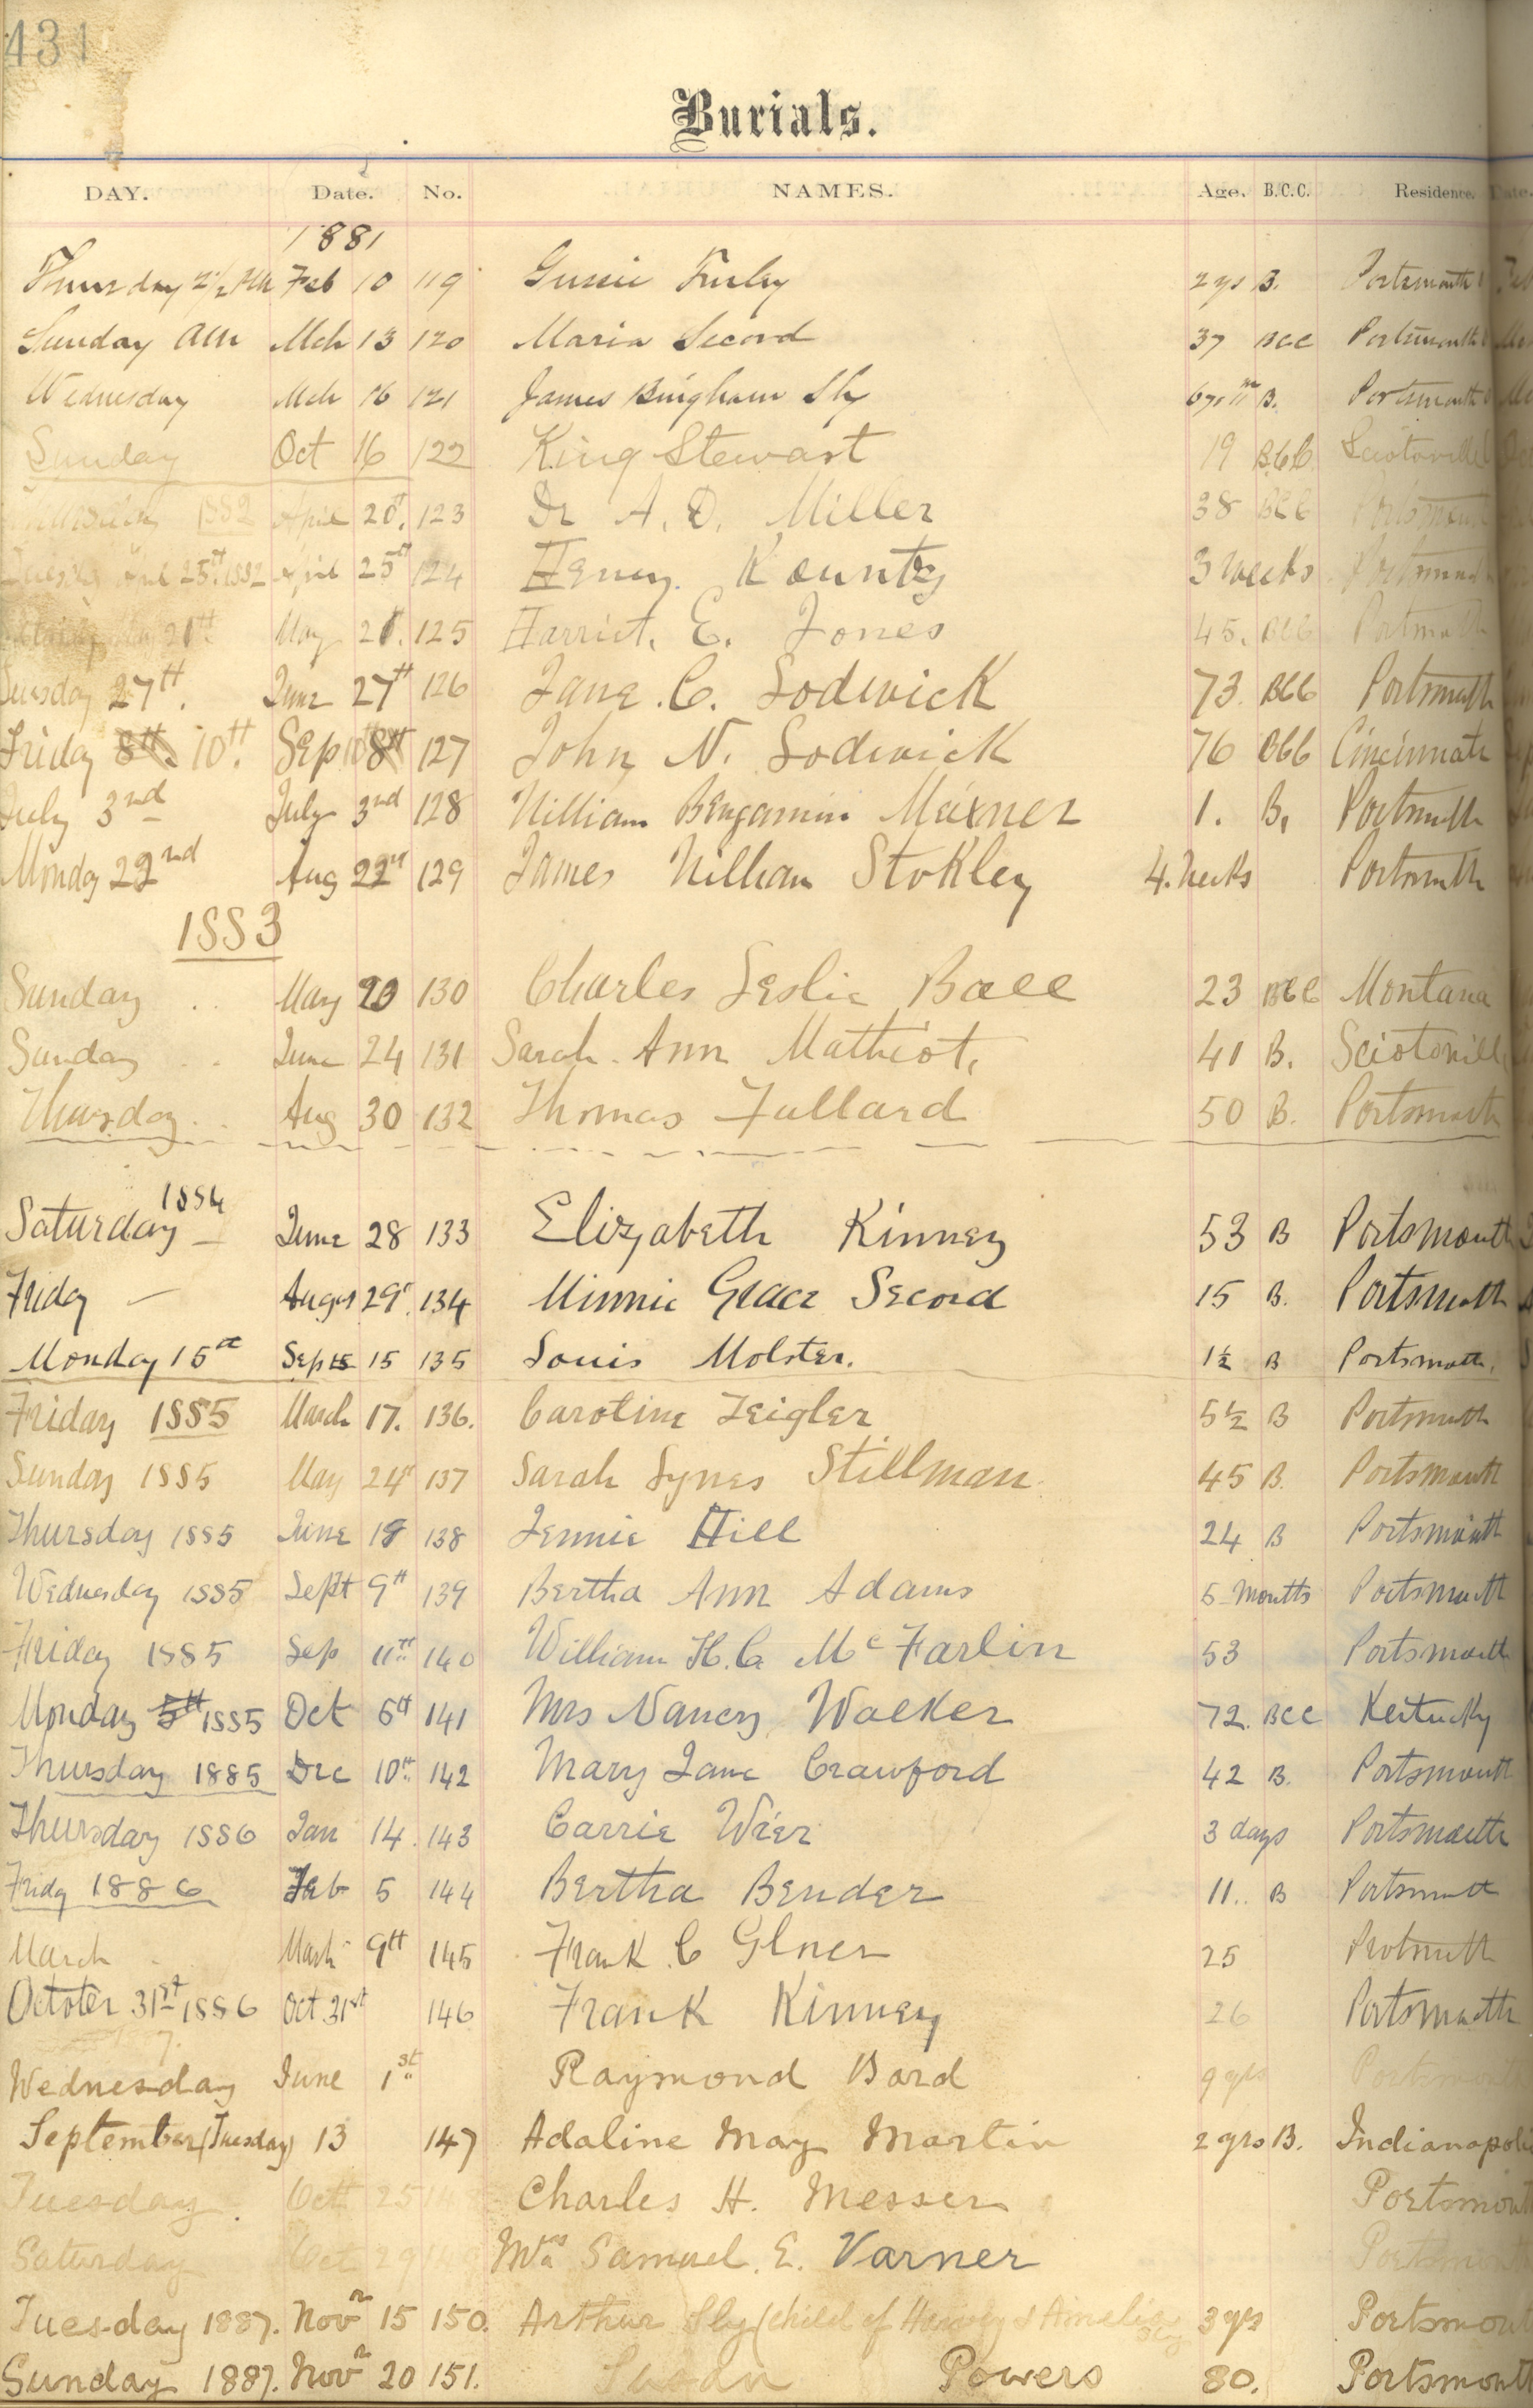 431
Burials.
DAY. Date. No. NAMES. Age. B.C.C. Residence. Date.
1881
Thursday 2½ PM Feb 10 119 Gussie Turley 2 yrs B. Portsmouth
Sunday AM Mch 13 120 Maria Secord 37 BCC Portsmouth
Wednesday Mch 16 121 James Bingham Sly B. Portsmouth
Sunday Oct 16 122 King Stewart 19 BCC Sciotoville
1882 April 20th. 123 Dr A. D. Miller 38 BCC Portsmouth
25th 1882 April 25th 124 Henry. Kountz 3 Weeks Portsmouth
May 21. 125 Harriet. E. Jones 45. BCC Portsmouth
Tuesday 27th. June 27th 126 Jane. C. Lodwick 73. BCC Portsmouth
Friday 8th 10th. Sep 10th 8th 127 John N. Lodwick 76 BCC Cincinnati
July 3rd July 3rd 128 William Benjamin Meixner 1. B. Portsmouth
Monday 22nd Aug 22nd 129 James William Stokley 4. Weeks Portsmouth
1883
Sunday .. May 20 130 Charles Leslie Ball 23 BCC Montana
Sunday .. June 24 131 Sarah. Ann Mathiot. 41 B. Sciotoville
Thursday .. Aug 30 132 Thomas Fullard 50 B. Portsmouth
1884
Saturday June 28 133 Elizabeth Kinney 53 B Portsmouth
Friday – August 29th. 134 Minnie Grace Secord 15 B. Portsmouth
Monday 15th Sept 15 15 135 Louis Molster. 1½ B Portsmouth.
Friday 1885 March 17. 136. Caroline Zeigler 5½ B Portsmouth
Sunday 1885 May 24th 137 Sarah Synes Stillman. 45 B. Portsmouth
Thursday 1885 June 18 138 Jennie Hill 24 B Portsmouth
Wednesday 1885 Sept 9th 139 Bertha Ann Adams 5 Months Portsmouth
Friday 1885 Sep 11th 140 William H. C. McFarlin 53 Portsmouth
Monday 5th 1885 Oct 141 Mrs Nancy Walker 72. BCC Kentucky
Thursday 1885 Dec 10th 142 Mary Jane Crawford 42 B. Portsmouth
Thursday 1886 Jan 14. 143 Carrie Wier 3 days Portsmouth
Friday 1886 Feb 5 144 Bertha Bender 11.. B Portsmouth
March March 9th 145 Frank. C 25 Portsmouth
October 31st 1886 Oct 31st 146 Frank Kinney 26 Portsmouth
7.
Wednesday June 1st Raymond Bard 9 yrs Portsmouth
September (Tuesday) 13 147 Adaline May Martin 2 yrs B. Indianapolis
Tuesday Oct 25 Charles H. Messer Portsmouth
Saturday Oct 29 Mrs Samuel. E. Varner Portsmouth
Tuesday 1887. Novr 15 150. Arthur Sly (child of Henry & Amelia Sly 3 yrs Portsmouth
Sunday 1887. Novr 20 151. Powers 80. Portsmouth